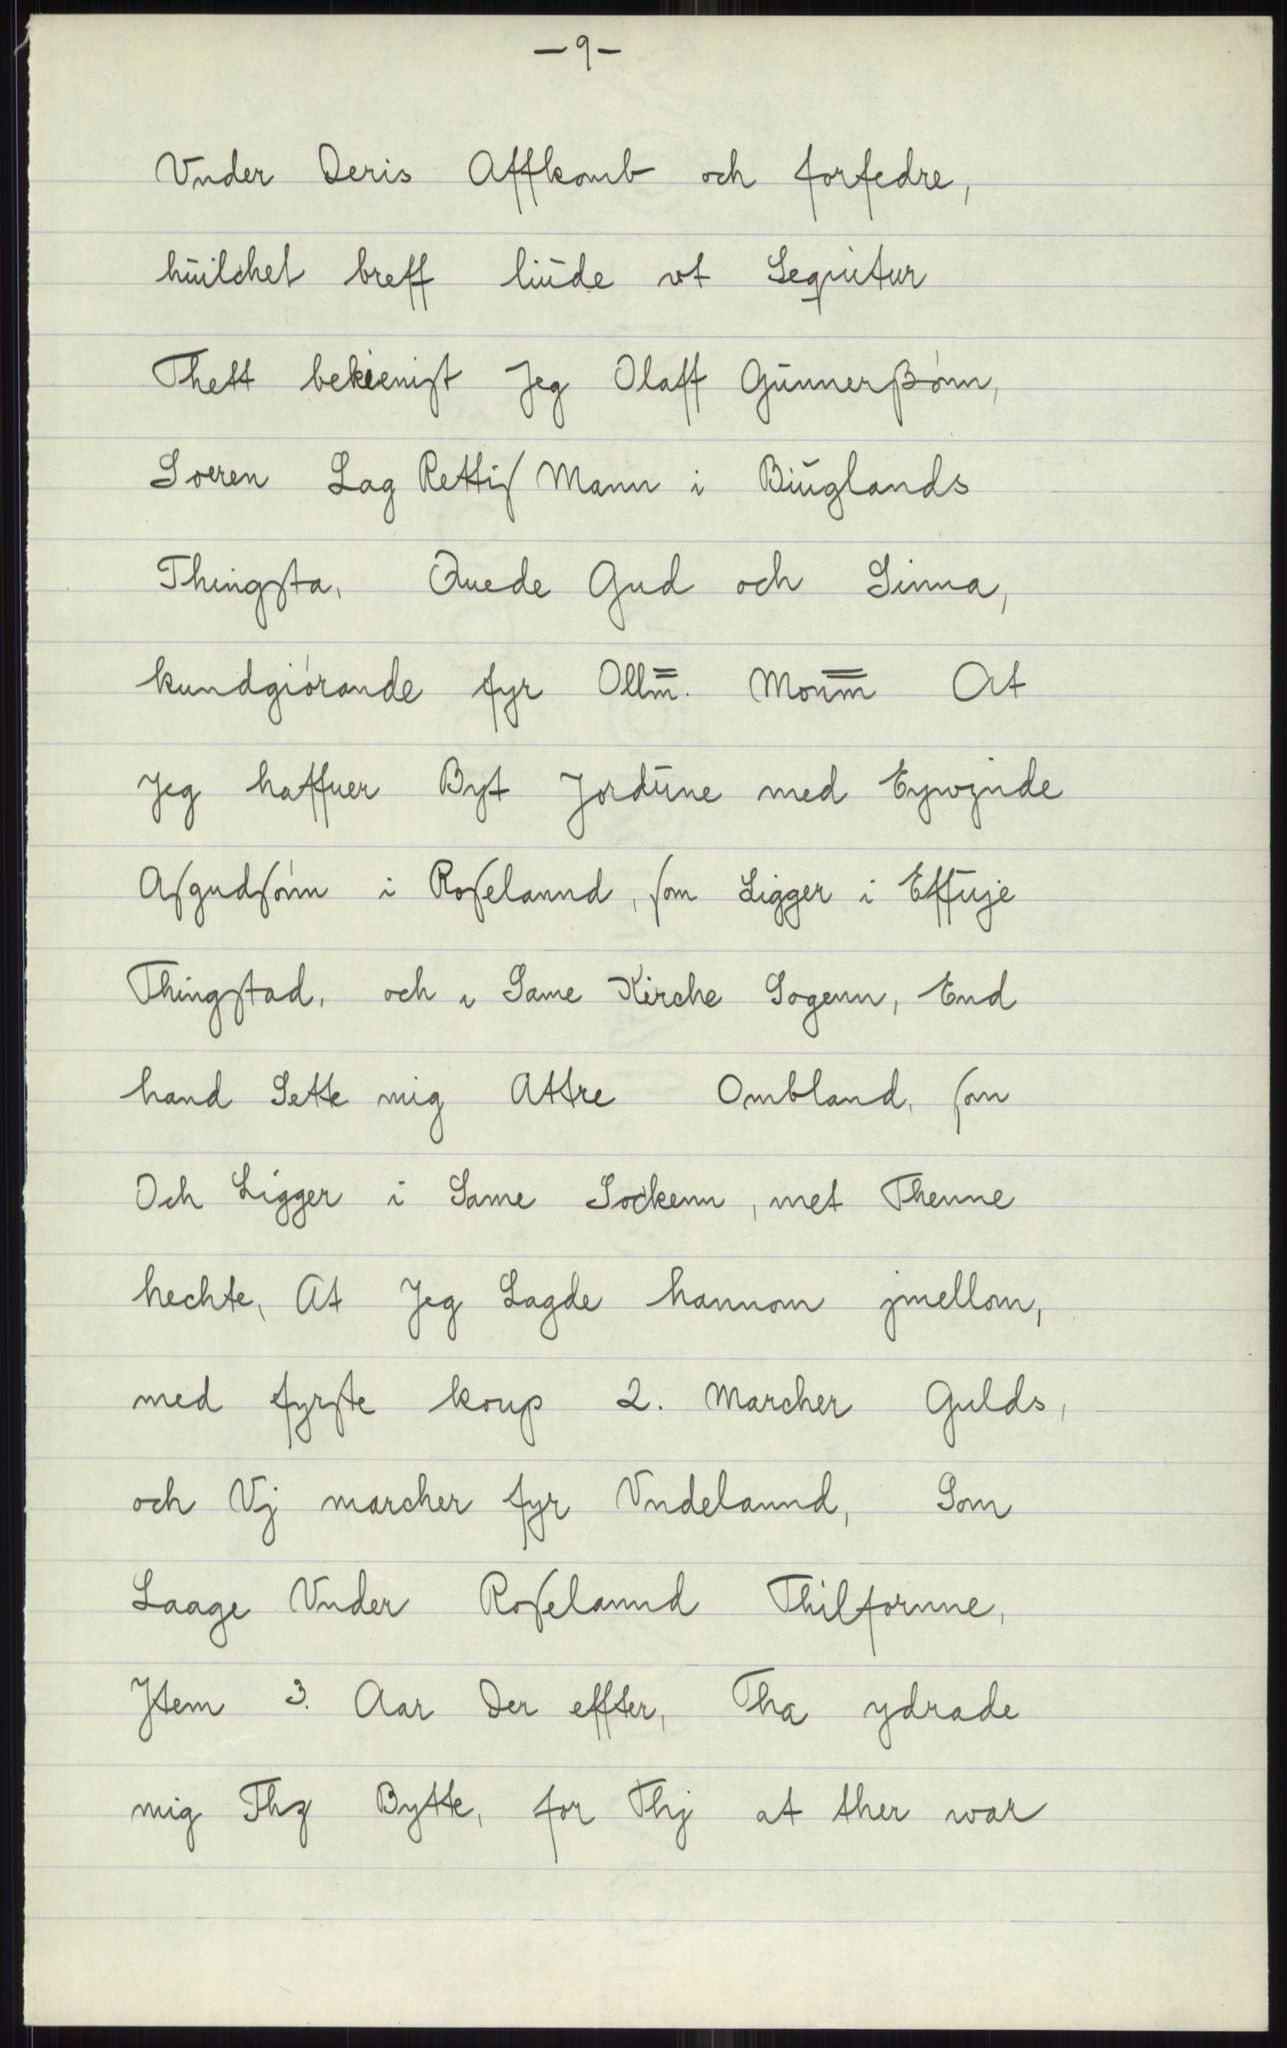 —9—
Vnder Deris Affkomb och forfedre,
huilchet breff liude vt Sequitur
Thett bekienist Jeg Olaff Gunnerßønn,
Soeren Lag Rettis Mann i Biuglands
Thingsta, Quede Gud och Sinna,
kundgiørande fyr Ollm̿. Monm̿ At
Jeg haffuer Byt Jordune med Eywynde
Asgudsønn i Roselannd, som Ligger i Effuje
Thingstad, och i Same Kirche Sogenn, End
hand Sette mig Attre Ombland, som
Och Ligger i Same Sockenn, met Thenne
hechte, At Jeg Lagde hannom jmellom,
med fyrste koup 2. Marcher Gulds,
och Vj marcher fyr Vndelannd, Som
Laage Vnder Roselannd Thilfornne,
Jtem 3. Aar Der effter, Tha ydrade
mig Thz Bytte, for Thj at ther war